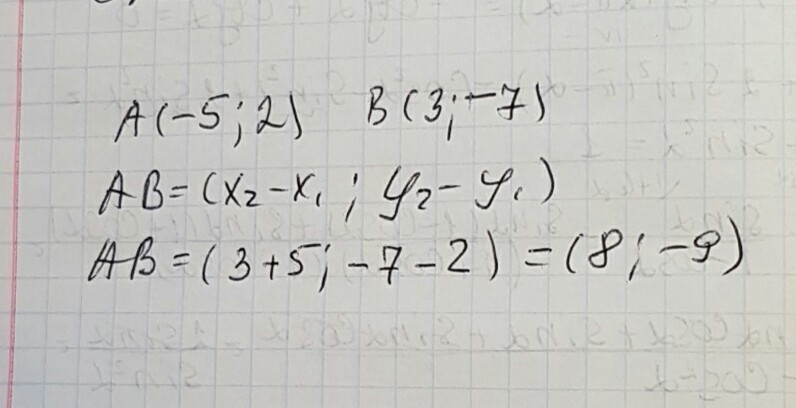 A(-5; 2) B(3; -7)
AB = (x₂ - x₁ ; y₂ - y₁)
AB = (3 + 5; -7 - 2) = (8; -9)